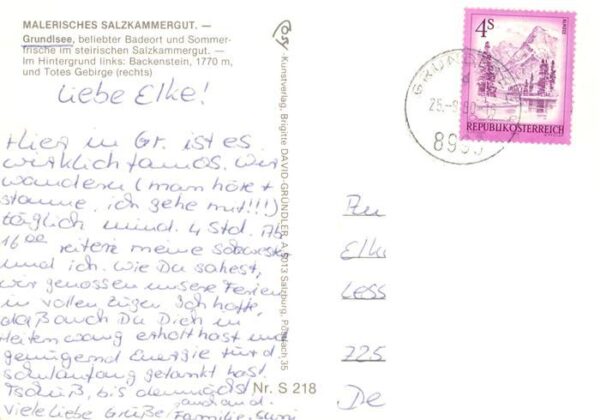 MALERISCHES SALZKAMMERGUT. —
Grundlsee, beliebter Badeort und Sommer-
frische im steirischen Salzkammergut. —
Im Hintergrund links: Backenstein, 1770 m,
und Totes Gebirge (rechts)
Liebe Elke!
Hier in Gr. ist es
wirklich famos. Wir
wandern (man höre +
staune, ich gehe mit!!!)
täglich mind. 4 Std. Ab
16⁰⁰ reiten meine Schwester
und ich. Wie Du siehst,
wir genossen unsere Ferien
in vollen Zügen. Ich hoffe,
daß auch Du Dich in
erholt hast und
genügend Energie für d.
Schulanfang getankt hast.
Tschüß, bis demnächst
Viele liebe Grüße, Familie
Kunstverlag, Brigitte DAVID-GRÜNDLER, A-5013 Salzburg, Postfach 35
Nr. S 218
4 S
REPUBLIK ÖSTERREICH
25.-8.80
899
Elke
725
De